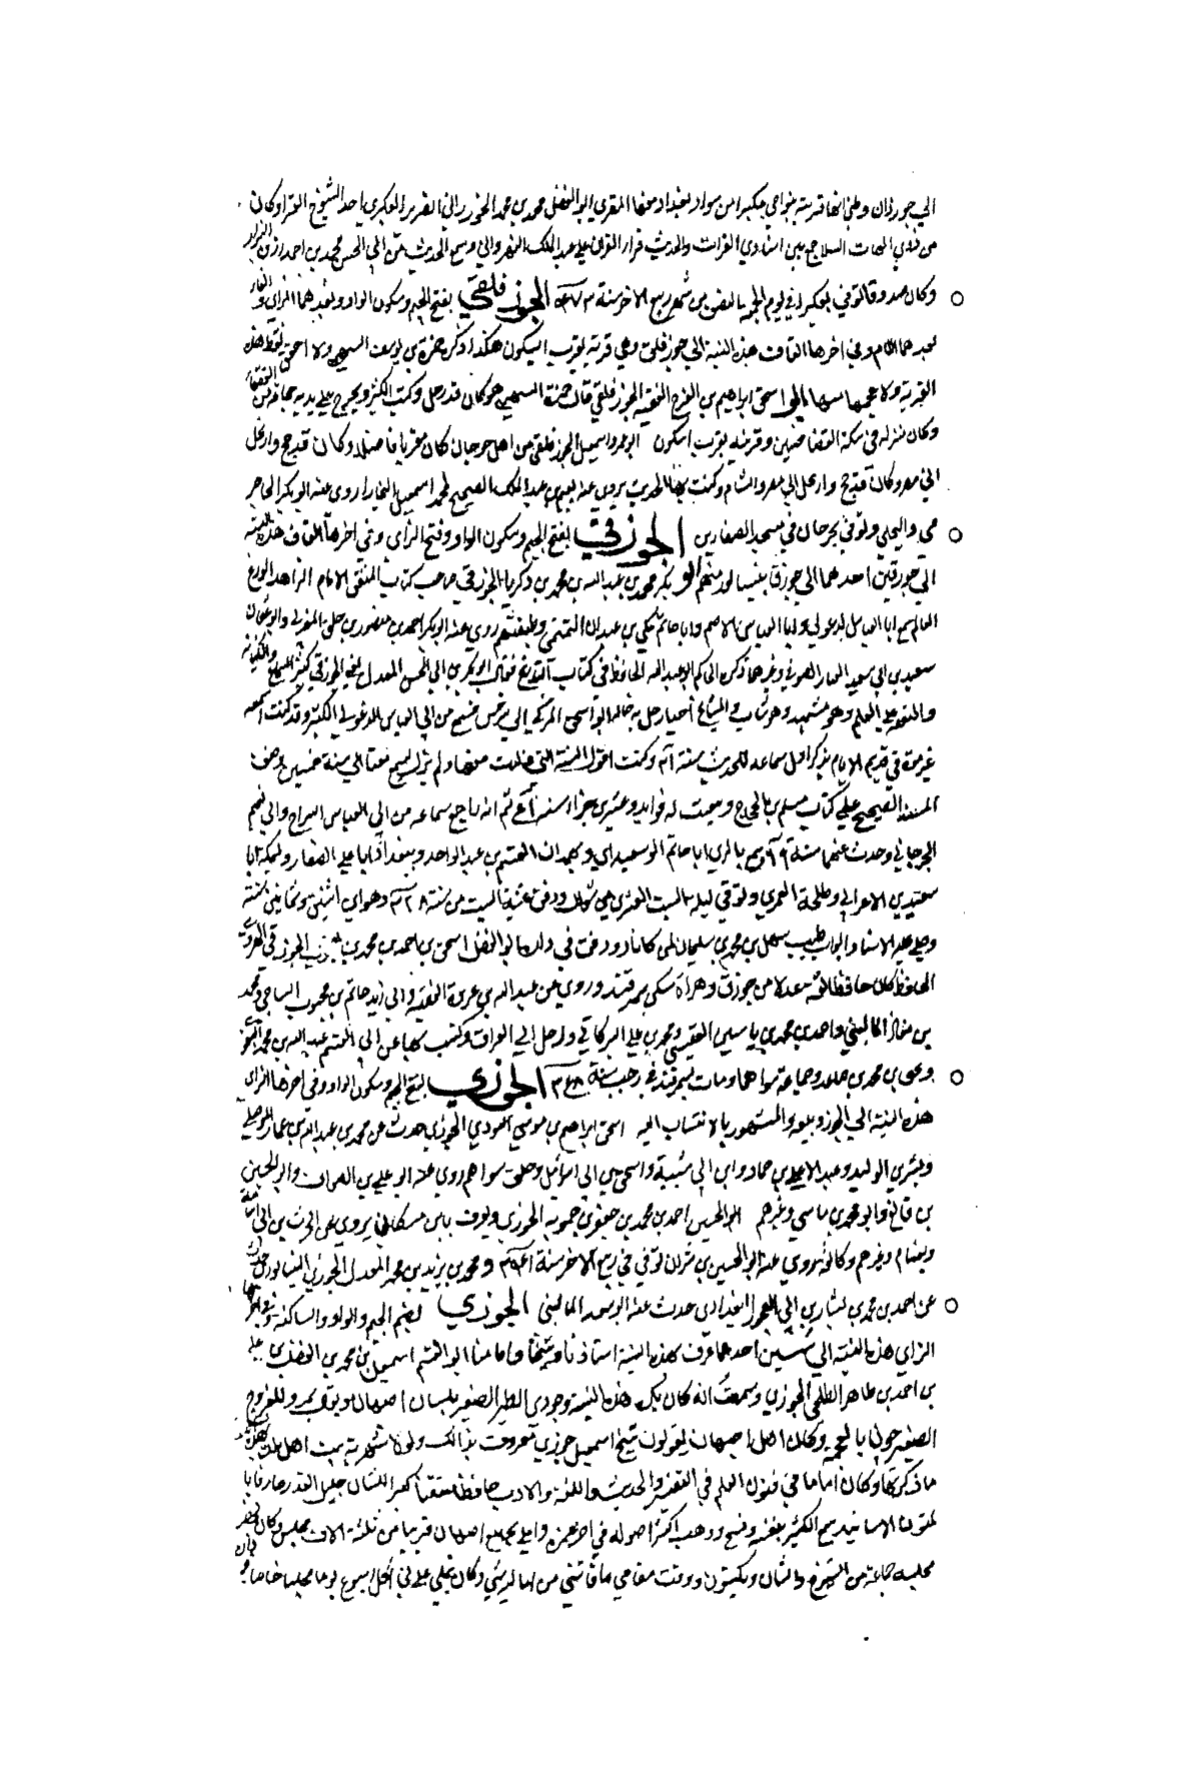 الى جوزران وظني انها قرية بنواحي عكبرا من سواد بغداد منها المقري ابو الفضل محمد بن محمد الجوزراني الضرير العكبري احد الشيوخ القراء وكان
من ذوي الهيات السلاح بين اشاوي القرات والحديث قرا القران على عبد الملك النهرواني وسمع الحديث من ابي الحسن محمد بن احمد ابن رزق البزاز
وكان صدوقا توفي بعكبرا في يوم الجمعة النصف من شهر ربيع الاخر سنة ٤٧٣ الجوزفلقي بفتح الجيم وسكون الواو وبعدهما الزاي والفا
بعدهما اللام وفي اخرها القاف هذه النسبة الى جوزفلق وهي قرية بقرب ابسكون هكذا ذكره حمزة بن يوسف السهمي ولا احق نقط هذه
القرية ولا عجمها منها ابو اسحق ابراهيم بن الفرج الفقيه الجوزفلقي قال حمزة السهمي هو كان قد رحل وكتب الكثير ويخرج على يديه جماعة من الفقهاء
وكان منزله في سكة القصاصين وقريته بقرب ابسكون ابو عمرو اسمعيل الجوزفلقي من اهل جرجان كان مقريا فاضلا وكان قد حج وارتحل
الى مصر وكان قد حج وارتحل الى مصر والشام وكتب بها الحديث يروي عنه نعيم بن عبد الملك الصحيح لمحمد اسمعيل البخاري روى عنه ابو بكر الجاجر
مي والبجلي وتوفي بجرجان في مسجد الصفارين الجوزقي بفتح الجيم وسكون الواو وفتح الزاي وفي اخرها القاف هذه النسبة
الى جوزقين احدهما الى جوزق نيسابور منهم ابو بكر محمد بن عبد الله بن محمد بن زكريا الجوزقي صاحب كتاب المتفق الامام الزاهد الورع
العالم سمع ابا العباس الدغولي وابا العباس الاصم وابا حاتم مكي بن عبدان التميمي وطبقتهم روى عنه ابو بكر احمد بن منصور بن خلف المغربي وابو عثمان
سعيد بن ابي سعيد العيار الصوفي وغيرهما ذكره الحاكم ابو عبد الله الحافظ في كتاب التاريخ فقال ابو بكر بن ابي الحسن المعدل الجوزقي كثير السماع والكتابة
والتفقه على العلم وهو مشهد وهو شاب والمشايخ احيا رحل به خاله ابو اسحق المزكي الى سرخس فسمع من ابي العباس الدغولي الكثير وقد كنت اسمعه
غير مرة في قديم الايام يذكر اول سماعه للحديث سنة وكنت اقول السنة التي ولدت فيها ولم يزل يسمع معنا الى سنة خمسين وصنف
المسند الصحيح على كتاب مسلم بن الحجاج وسمعت له فوايد في عشرين جزءا سنة ثم انه راجع سماعه من ابي العباس السراج وابي نعيم
الجرجاني وحدث عنهما سنة وسمع بالري ابا حاتم الوسعيدي وبهمدان القاسم بن عبد الواحد وببغداد ابا علي الصفار وبمكة ابا
سعيد بن الاعرابي وطلحة العمري وتوفي ليلة السبت العشرين من شوال ودفن عشية السبت من سنة ٣٨٨ وهو ابن اثنتين وثمانين سنة
وصلى عليه الاستاذ ابو الطيب سهل بن محمد بن سليمان ودفن في داره ابو الفضل اسحق بن احمد بن محمد بن الجوزقي الهروي
الحافظ كان حافظا ثقة عدلا من جوزق وهراة سكن سمرقند وروى عن عبد الله بن عروة الفقيه وابي زيد حاتم بن محبوب السامي ومحمد
بن معاذ الماليني واحمد بن محمد بن ياسين القيسي ومحمد بن علي البركاتي ورحل الى العراق وكتب بها عن ابي القسم عبد الله بن محمد البغوي
ويحيى بن محمد بن صاعد وجماعة سواهما ومات بسمرقند في رجب سنة ٣٥٨ الجوزي بفتح الجيم وسكون الواو وفي اخرها الزاي
هذه النسبة الى الجوز وبيعه والمشهور بالانتساب اليه اسحق ابراهيم بن موسى التوزي الجوزي حدث عن محمد بن عبد الله بن عمار الموصلي
وبشر بن الوليد وعبد الاعلى بن حماد وابن ابي شيبة واسحق بن ابي اسرائيل وخلق سواهم روى عنه ابو علي بن الصواف وابو الحسين
بن قانع وابو محمد بن ماسي وغيرهم ابو الحسين احمد بن محمد بن جعفر بن حمويه الجوزي ويعرف بابن مشكان يروي عن الحرث بن ابي اسامة
وتمتام وغيرهم وكان ثقة روى عنه ابو الحسين بن بشران توفي في ربيع الاخر سنة ٣٤١ ومحمد بن يزيد بن محمد المعدل الجوزي النيسابوري حدث
عن احمد بن محمد بن بشار بن ابي العجوز البغدادي حدث عنه ابو سعد الماليني الجوزي بضم الجيم والواو الساكنة وفي اخرها
الزاي هذه النسبة الى شيئين احدهما عرف بهذه النسبة استاذنا وشيخنا وامامنا ابو القسم اسمعيل بن محمد بن الفضل بن علي
بن احمد بن طاهر الطلحي الجوزي وسمعت انه كان يكره هذه النسبة وجوزي الطير الصغير بلسان اصبهان ويقال بمرو للفروج
الصغير جوزا بالعجمية وكان اهل اصبهان يقولون شيخ اسمعيل جوزي معروف بذلك ولولا شهرته بين اهل بلده بهذا
ما ذكرتها وكان اماما في فنون العلم في التفسير والحديث واللغة والادب حافظا متقنا كبير الشان جليل القدر عارفا با
لمتون الاسانيد سمع الكثير بنفسه ونسخ ووهب اكثر اصوله في اخر عمره واملى بجامع اصبهان قريبا من ثلثة الاف مجلس وكان يحضر
مجلسه جماعة من الشيوخ والشبان ويكتبون ووقت مقامي ما فاتني من اماليه شي وكان يملي علي في كل اسبوع يوما مجلسا خاصا